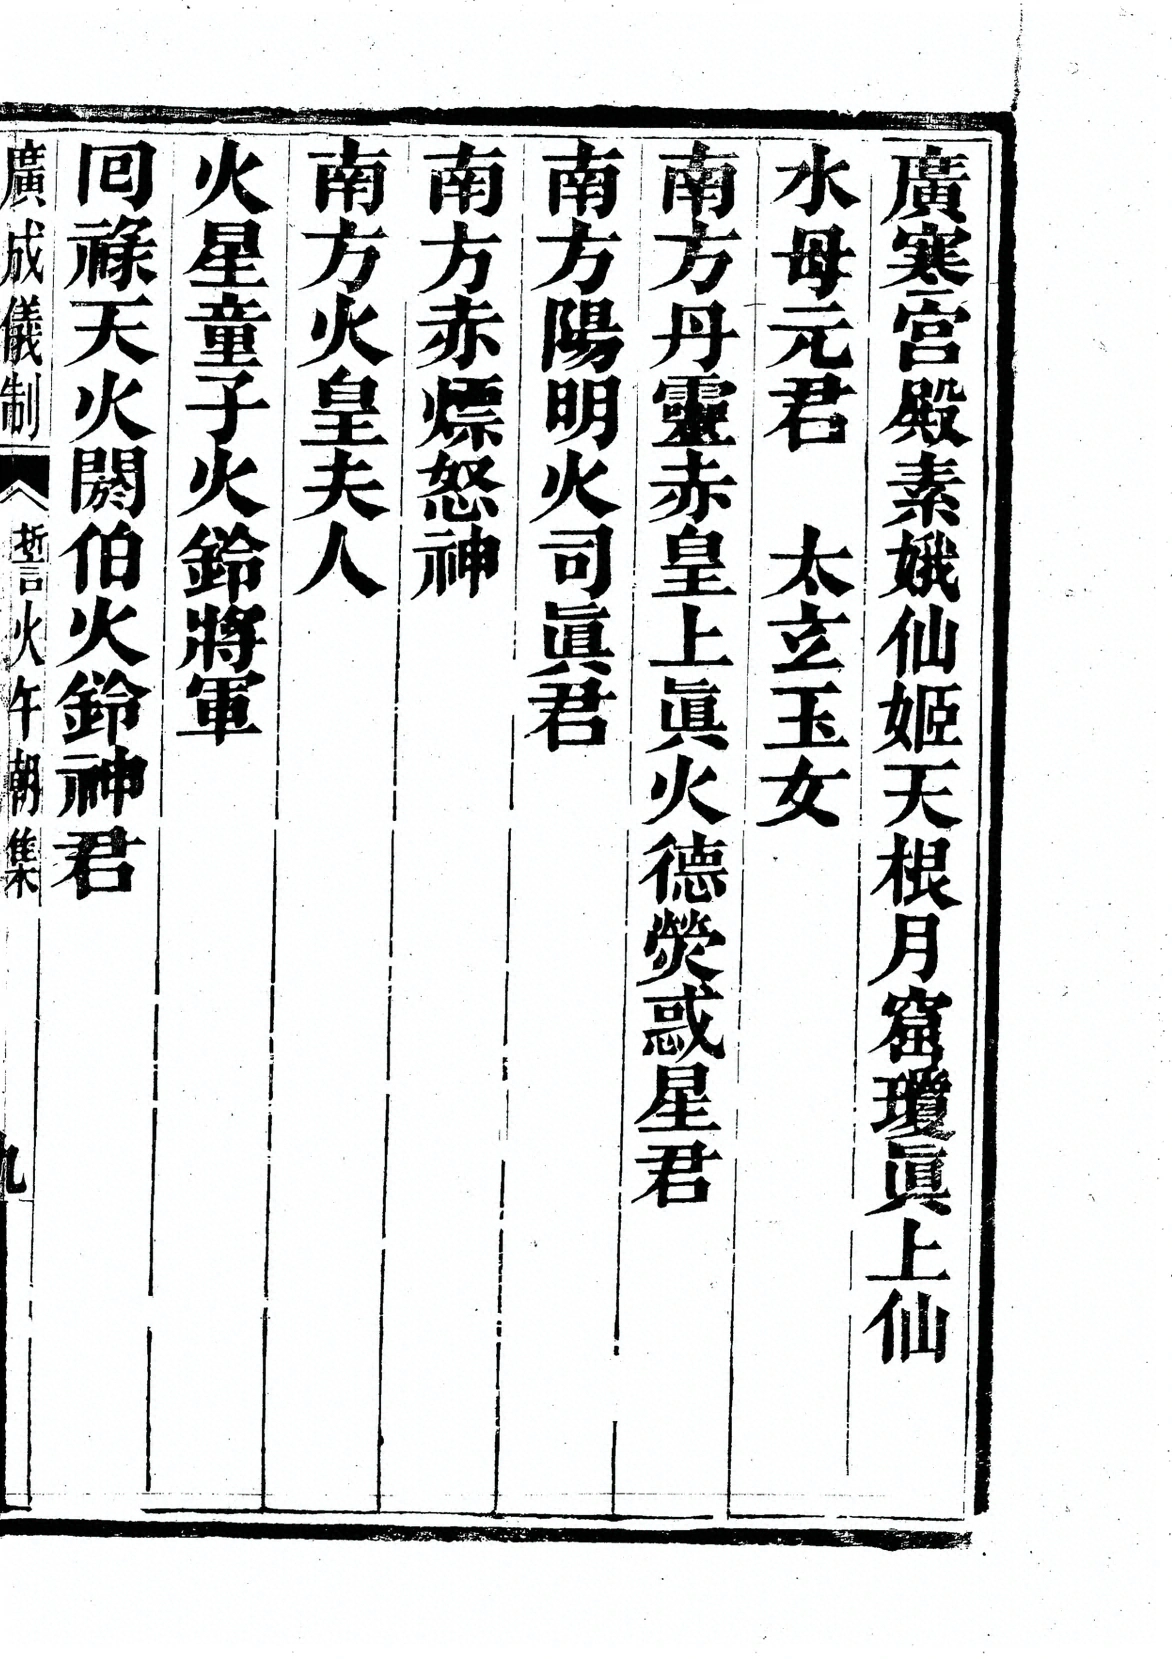 廣寒宮殿素娥仙姬天根月窟瓊眞上仙
水母元君　太玄玉女
南方丹靈赤皇上眞火德熒惑星君
南方陽明火司眞君
南方赤熛怒神
南方火皇夫人
火星童子火鈴將軍
囘祿天火閼伯火鈴神君
廣成儀制　誓火午朝集　九